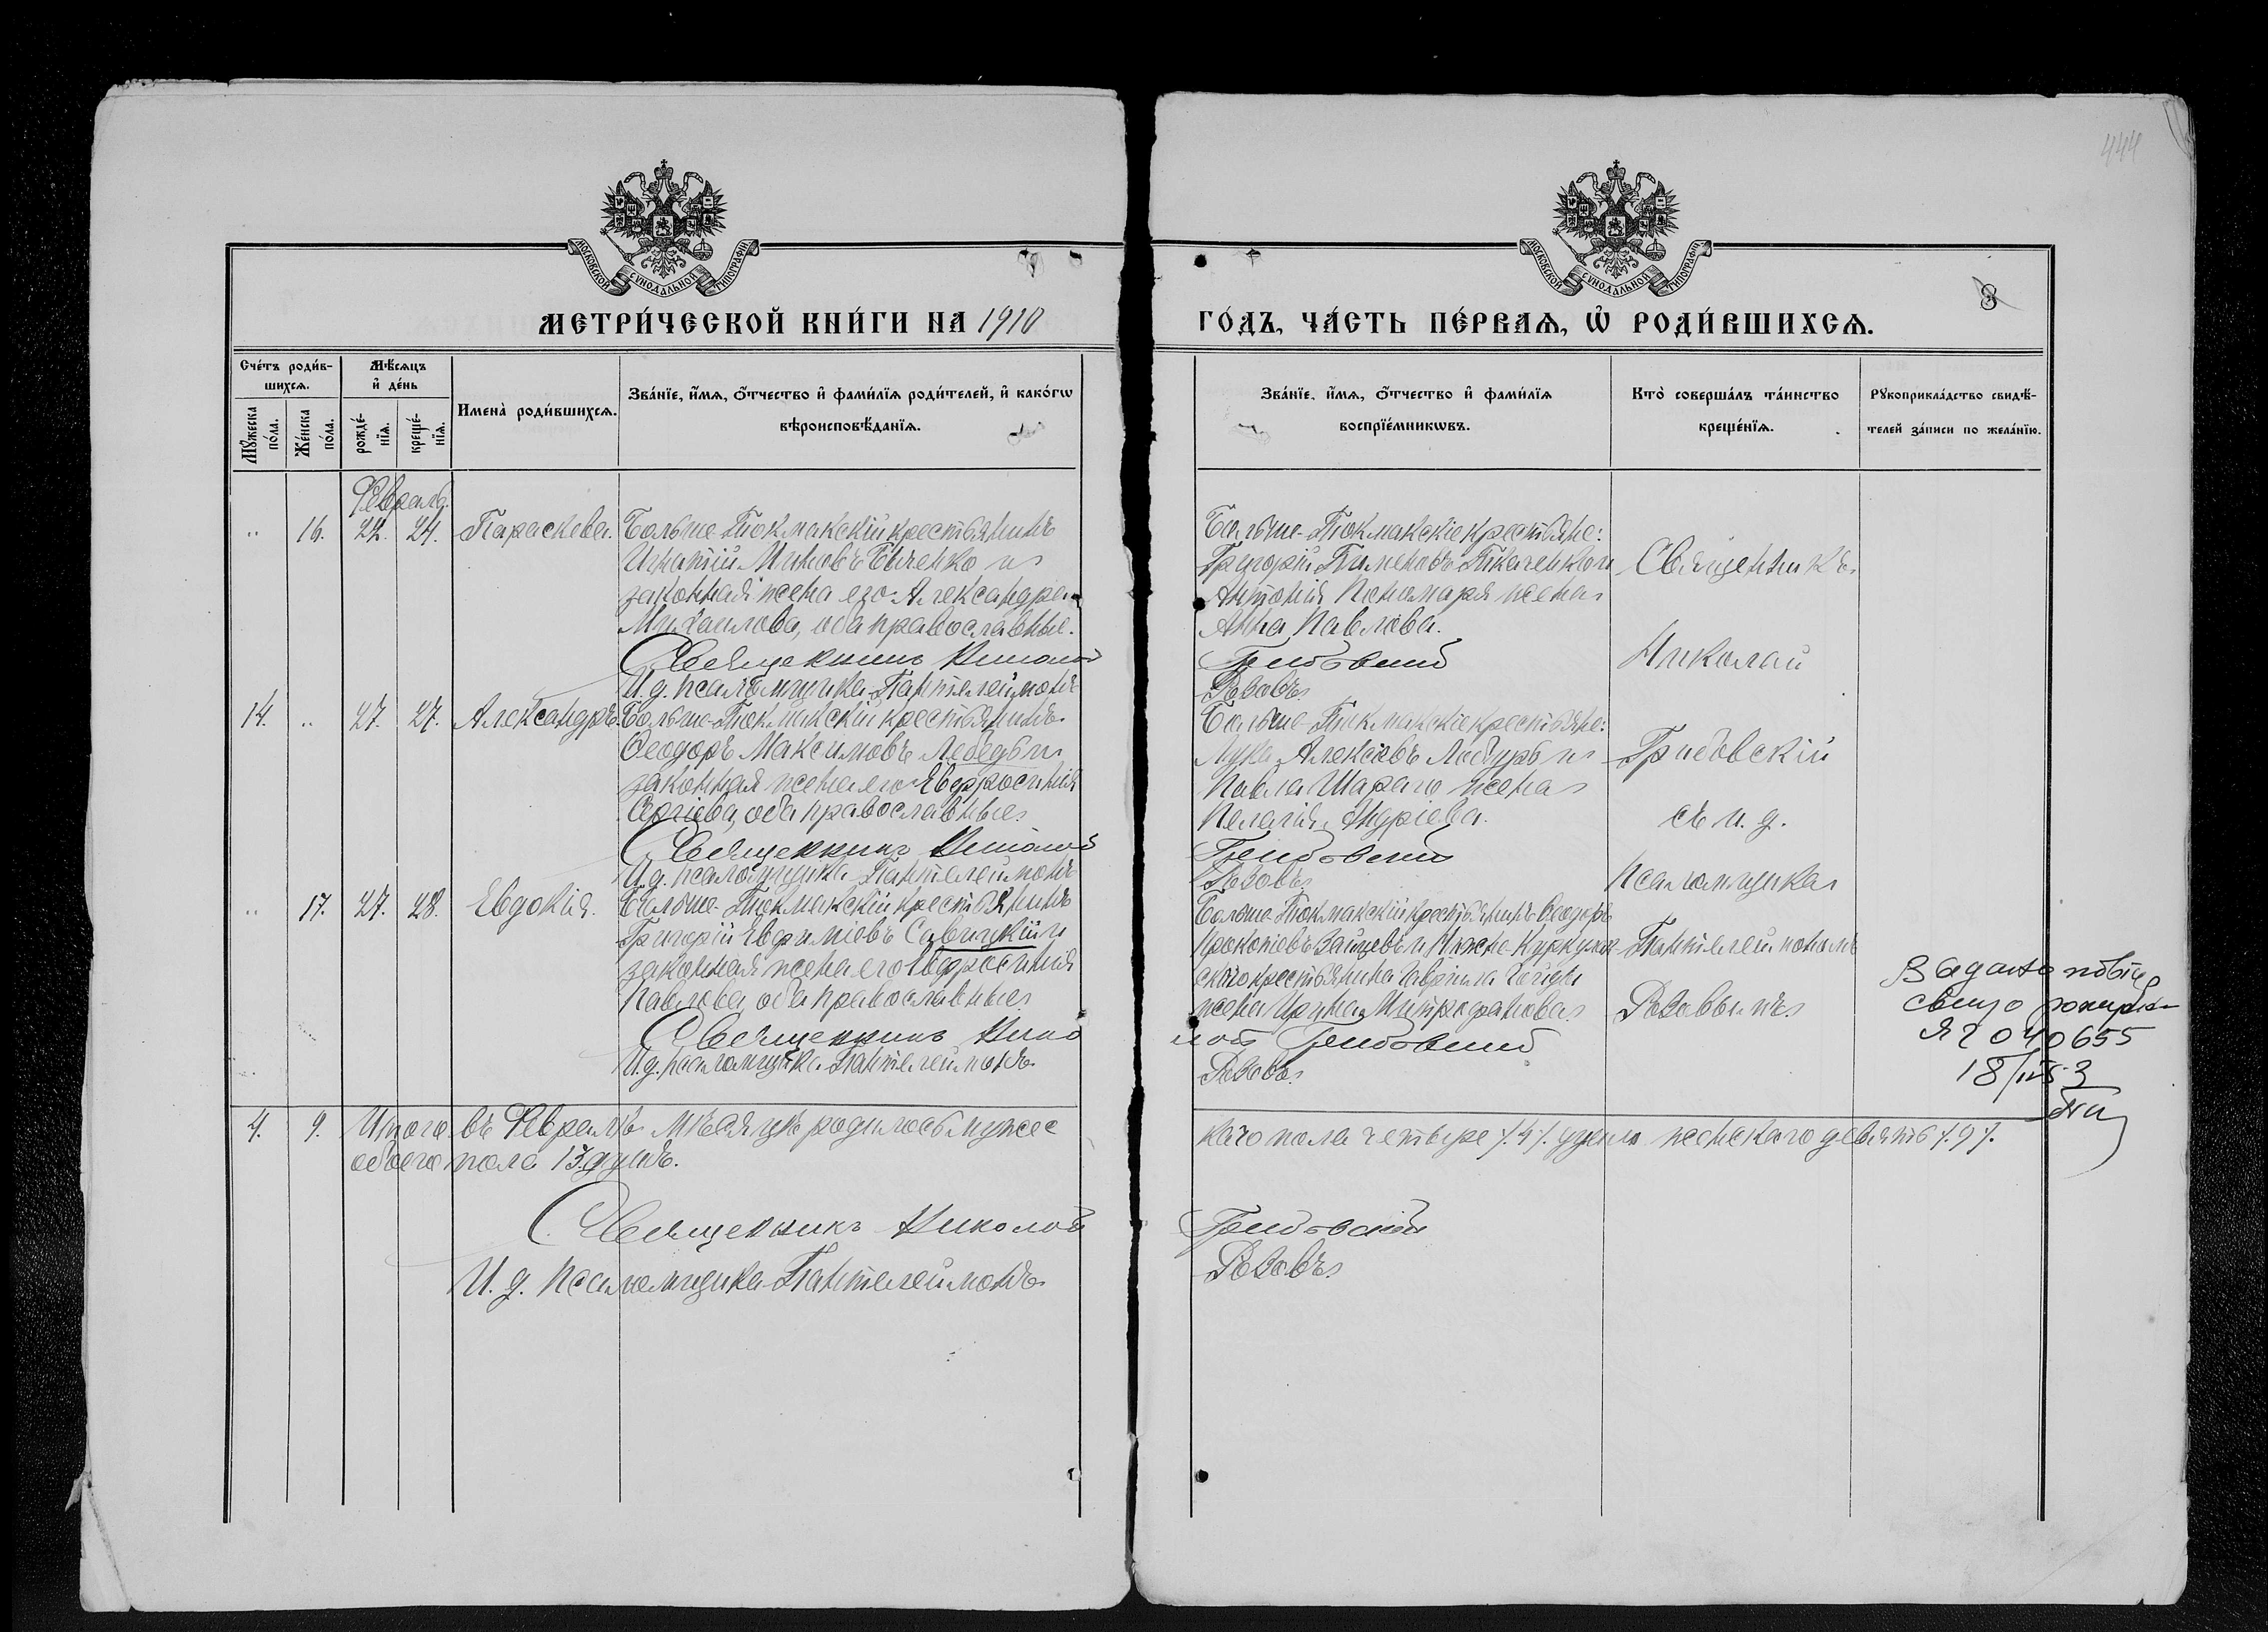 444
МОСКОВСКОЙ СѴНОДАЛЬНОЙ ТИПОГРАФІИ
МОСКОВСКОЙ СѴНОДАЛЬНОЙ ТИПОГРАФІИ
8
МЕТРИ́ЧЕСКОЙ КНИ́ГИ НА 1910
ГО́ДЪ, ЧА́СТЬ ПЕ́РВАѦ, Ѡ҆ РОДИ́ВШИХСѦ.
Сче́тъ роди́в-
шихсѧ.
Мꙋ́жеска
по́ла.
Же́нска
по́ла.
Мѣ́сѧцъ
и҆ де́нь
рожде́-
нїѧ.
креще́-
нїѧ.
Имена̀ роди́вшихсѧ.
Зва́нїе, и҆́мѧ, ѻ҆́тчество и҆ фами́лїѧ роди́телей, и҆ како́гѡ
вѣроисповѣ́данїѧ.
Зва́нїе, и҆́мѧ, ѻ҆́тчество и҆ фами́лїѧ
воспрїе́мникѡвъ.
Кто̀ соверша́лъ та́инство
креще́нїѧ.
Рꙋкоприкла́дство свидѣ́-
телей за́писи по жела́нїю.
Февраль.
" 16. 22. 24. Параскева.
Больше-Токмакскій крестьянинъ
Игнатій Миновъ Быченко и
законная жена его Александра
Михаилова, оба православные.
Священникъ Николай
И.д. псаломщика Пантелеимонъ
Больше-Токмакскіе крестьяне:
Григорій Пименовъ Ткаченко и
Антонія Пономаря жена
Анна Павлова.
Грибовскій
Рѣзовъ.
14. " 27. 27. Александръ.
Больше-Токмакскій крестьянинъ
Ѳеодоръ Максимовъ Лебедь и
законная жена его Евфросинія
Сергіева, оба православные.
Священникъ Николай
И.д. псаломщика Пантелеимонъ
Больше-Токмакскіе крестьяне:
Лука Алексіевъ и
Павла жена
Пелагія Андріева.
Грибовскій
Рѣзовъ.
" 17. 27. 28. Евдокія.
Больше-Токмакскій крестьянинъ
Григорій Евфиміевъ Савицкій и
законная жена его Евфросинія
Павлова, оба православные.
Священникъ Нико
И.д. псаломщика Пантелеимонъ
Больше-Токмакскій крестьянинъ Ѳеодоръ
Прокопіевъ Зайцевъ и Нижне-Куркулак-
скаго крестьянина Гавріила
жена Ирина Митрофанова.
лай Грибовскій
Рѣзовъ.
Священникъ
Николай
Грибовскій
съ и. д.
псаломщика
Пантелеимономъ
Рѣзовымъ
Я2 040655
4. 9. Итого въ Февралѣ мѣсяцѣ родилось мужес
каго пола четыре /.4/. души женскаго девять /.9/.
обоего пола 13. душъ.
Священникъ Николай
Грибовскій
И. д. Псаломщика Пантелеимонъ
Рѣзовъ.